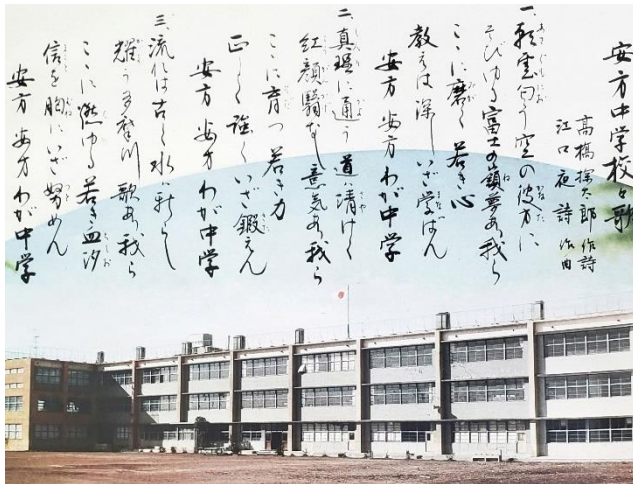 安方中学校々歌
高橋掬太郎 作詩
江口夜詩 作曲
一、雲匂う空の彼方に
そびゆる富士の嶺夢あり我ら
ここに磨く若き心
教えは深しいざ学ばん
安方 安方 わが中学
二、真理に通う道は清けく
紅顔翳なし意気あり我ら
ここに育つ 若き力
正しく 強く いざ鍛えん
安方 安方 わが中学
三、流れは古く水は新らし
耀う多摩川歌あり我ら
ここに燃ゆる若き血汐
信を胸にいざ努めん
安方 安方 わが中学